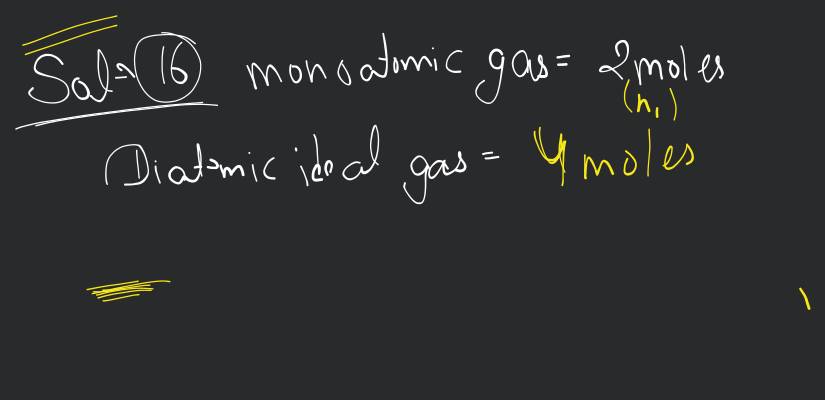 Sol=> 16 monoatomic gas = 2 moles
(n₁)
Diatomic ideal gas = 4 moles